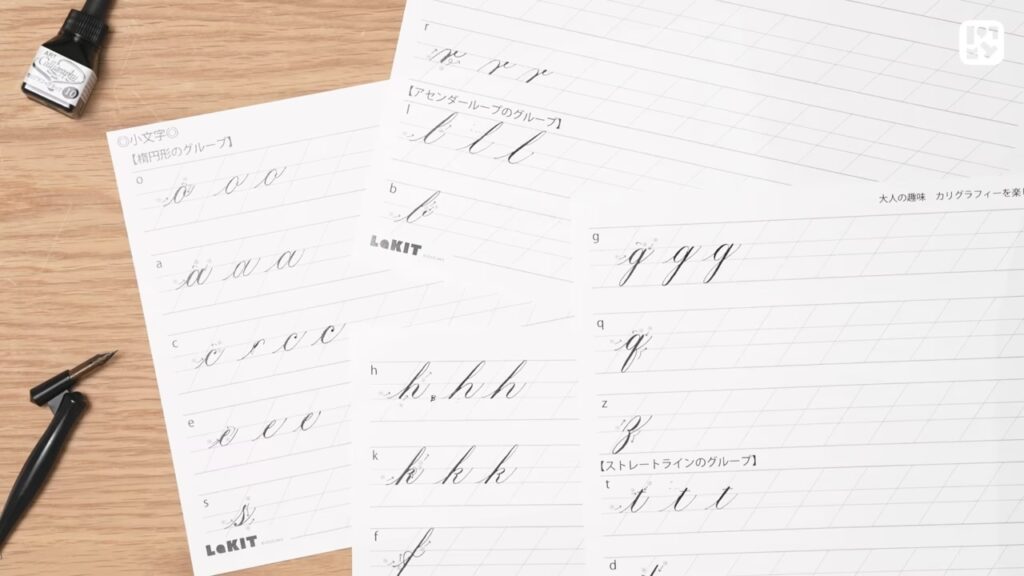 Calligraphy
◎小文字◎
【楕円形のグループ】
o
o o o
a
a a a
c
c c c c
e
e e e
s
s
LeKIT
r
r r r
【アセンダーループのグループ】
l
l l l
b
b
LeKIT
h
h h h
k
k k k
f
f
大人の趣味 カリグラフィーを楽
g
g g g
q
q
z
z
【ストレートラインのグループ】
t
t t t
d